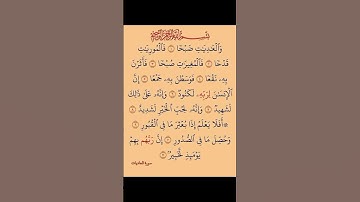 بِسْمِ ٱللَّهِ ٱلرَّحْمَٰنِ ٱلرَّحِيمِ
وَٱلْعَٰدِيَٰتِ ضَبْحًا ۝١ فَٱلْمُورِيَٰتِ
قَدْحًا ۝٢ فَٱلْمُغِيرَٰتِ صُبْحًا ۝٣ فَأَثَرْنَ
بِهِۦ نَقْعًا ۝٤ فَوَسَطْنَ بِهِۦ جَمْعًا ۝٥ إِنَّ
ٱلْإِنسَٰنَ لِرَبِّهِۦ لَكَنُودٌ ۝٦ وَإِنَّهُۥ عَلَىٰ ذَٰلِكَ
لَشَهِيدٌ ۝٧ وَإِنَّهُۥ لِحُبِّ ٱلْخَيْرِ لَشَدِيدٌ ۝٨
۞ أَفَلَا يَعْلَمُ إِذَا بُعْثِرَ مَا فِى ٱلْقُبُورِ ۝٩
وَحُصِّلَ مَا فِى ٱلصُّدُورِ ۝١٠ إِنَّ رَبَّهُم بِهِمْ
يَوْمَئِذٍ لَّخَبِيرٌۢ ۝١١
سورة العاديات